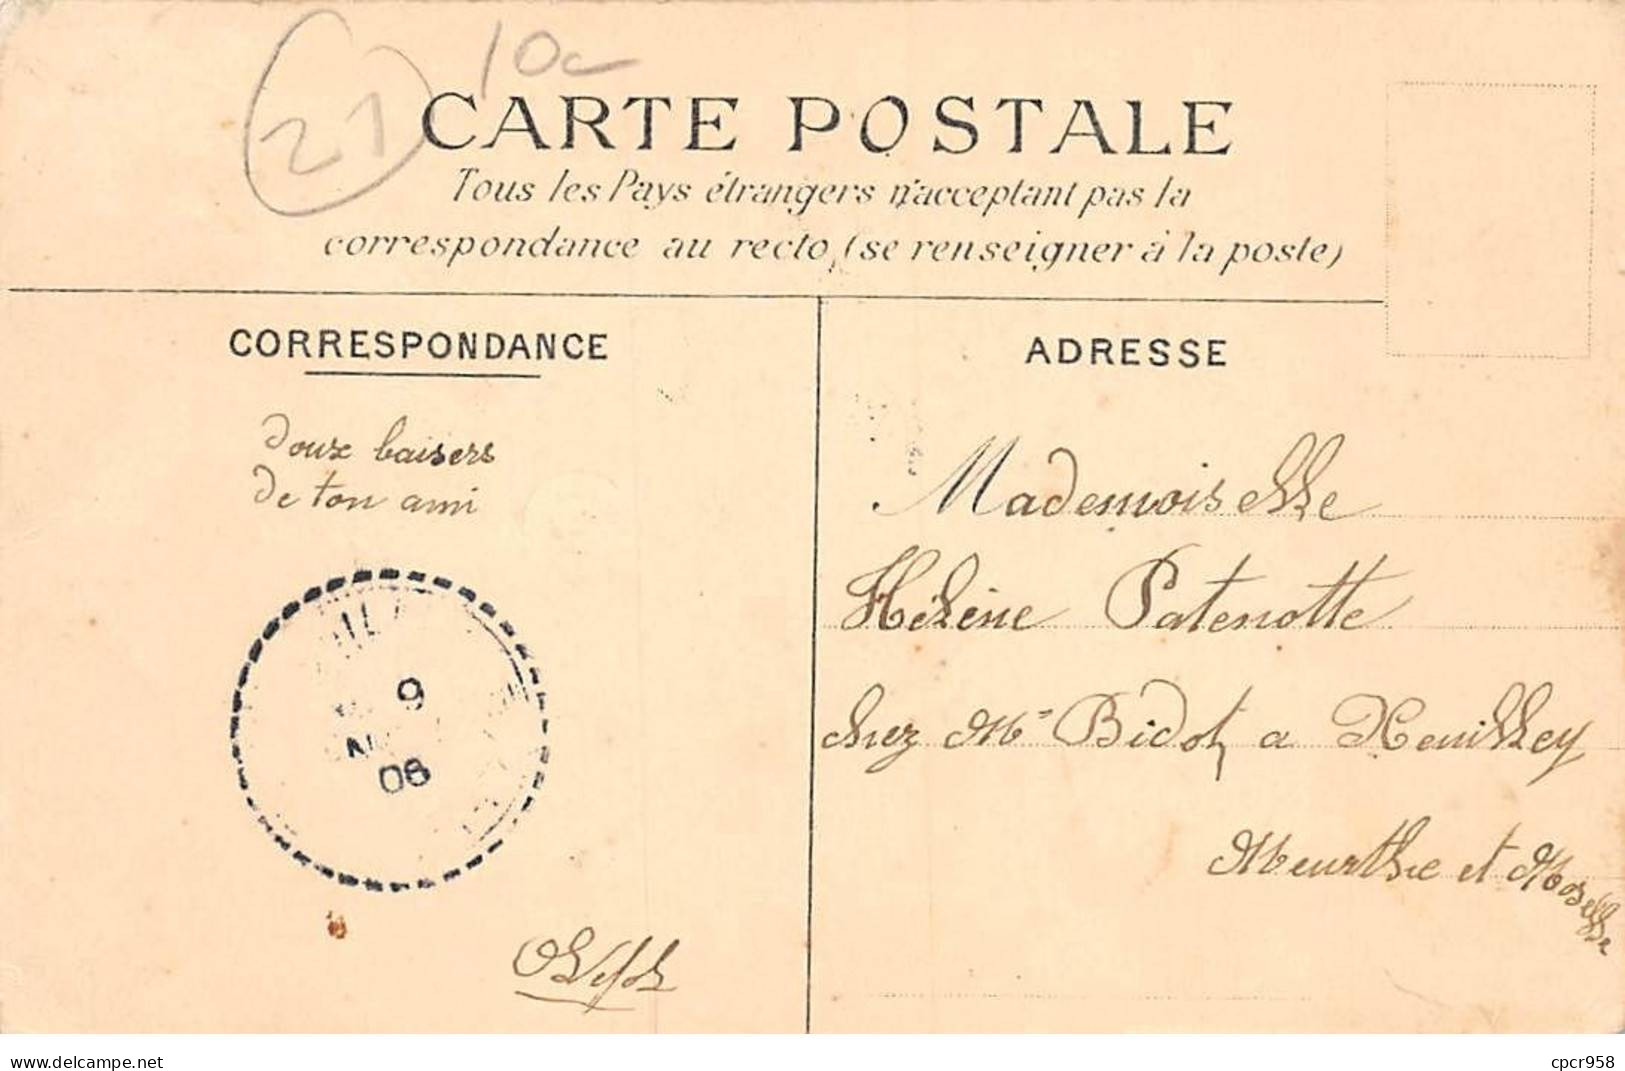 10c
21
CARTE POSTALE
Tous les Pays étrangers n'acceptant pas la
correspondance au recto, (se renseigner à la poste)
CORRESPONDANCE
ADRESSE
Doux baisers
De ton ami
Mademoiselle
Hélène Patenotte
chez Mr Bidot a
Meurthe et Moselle
9
06
delcampe.net
cpcr958